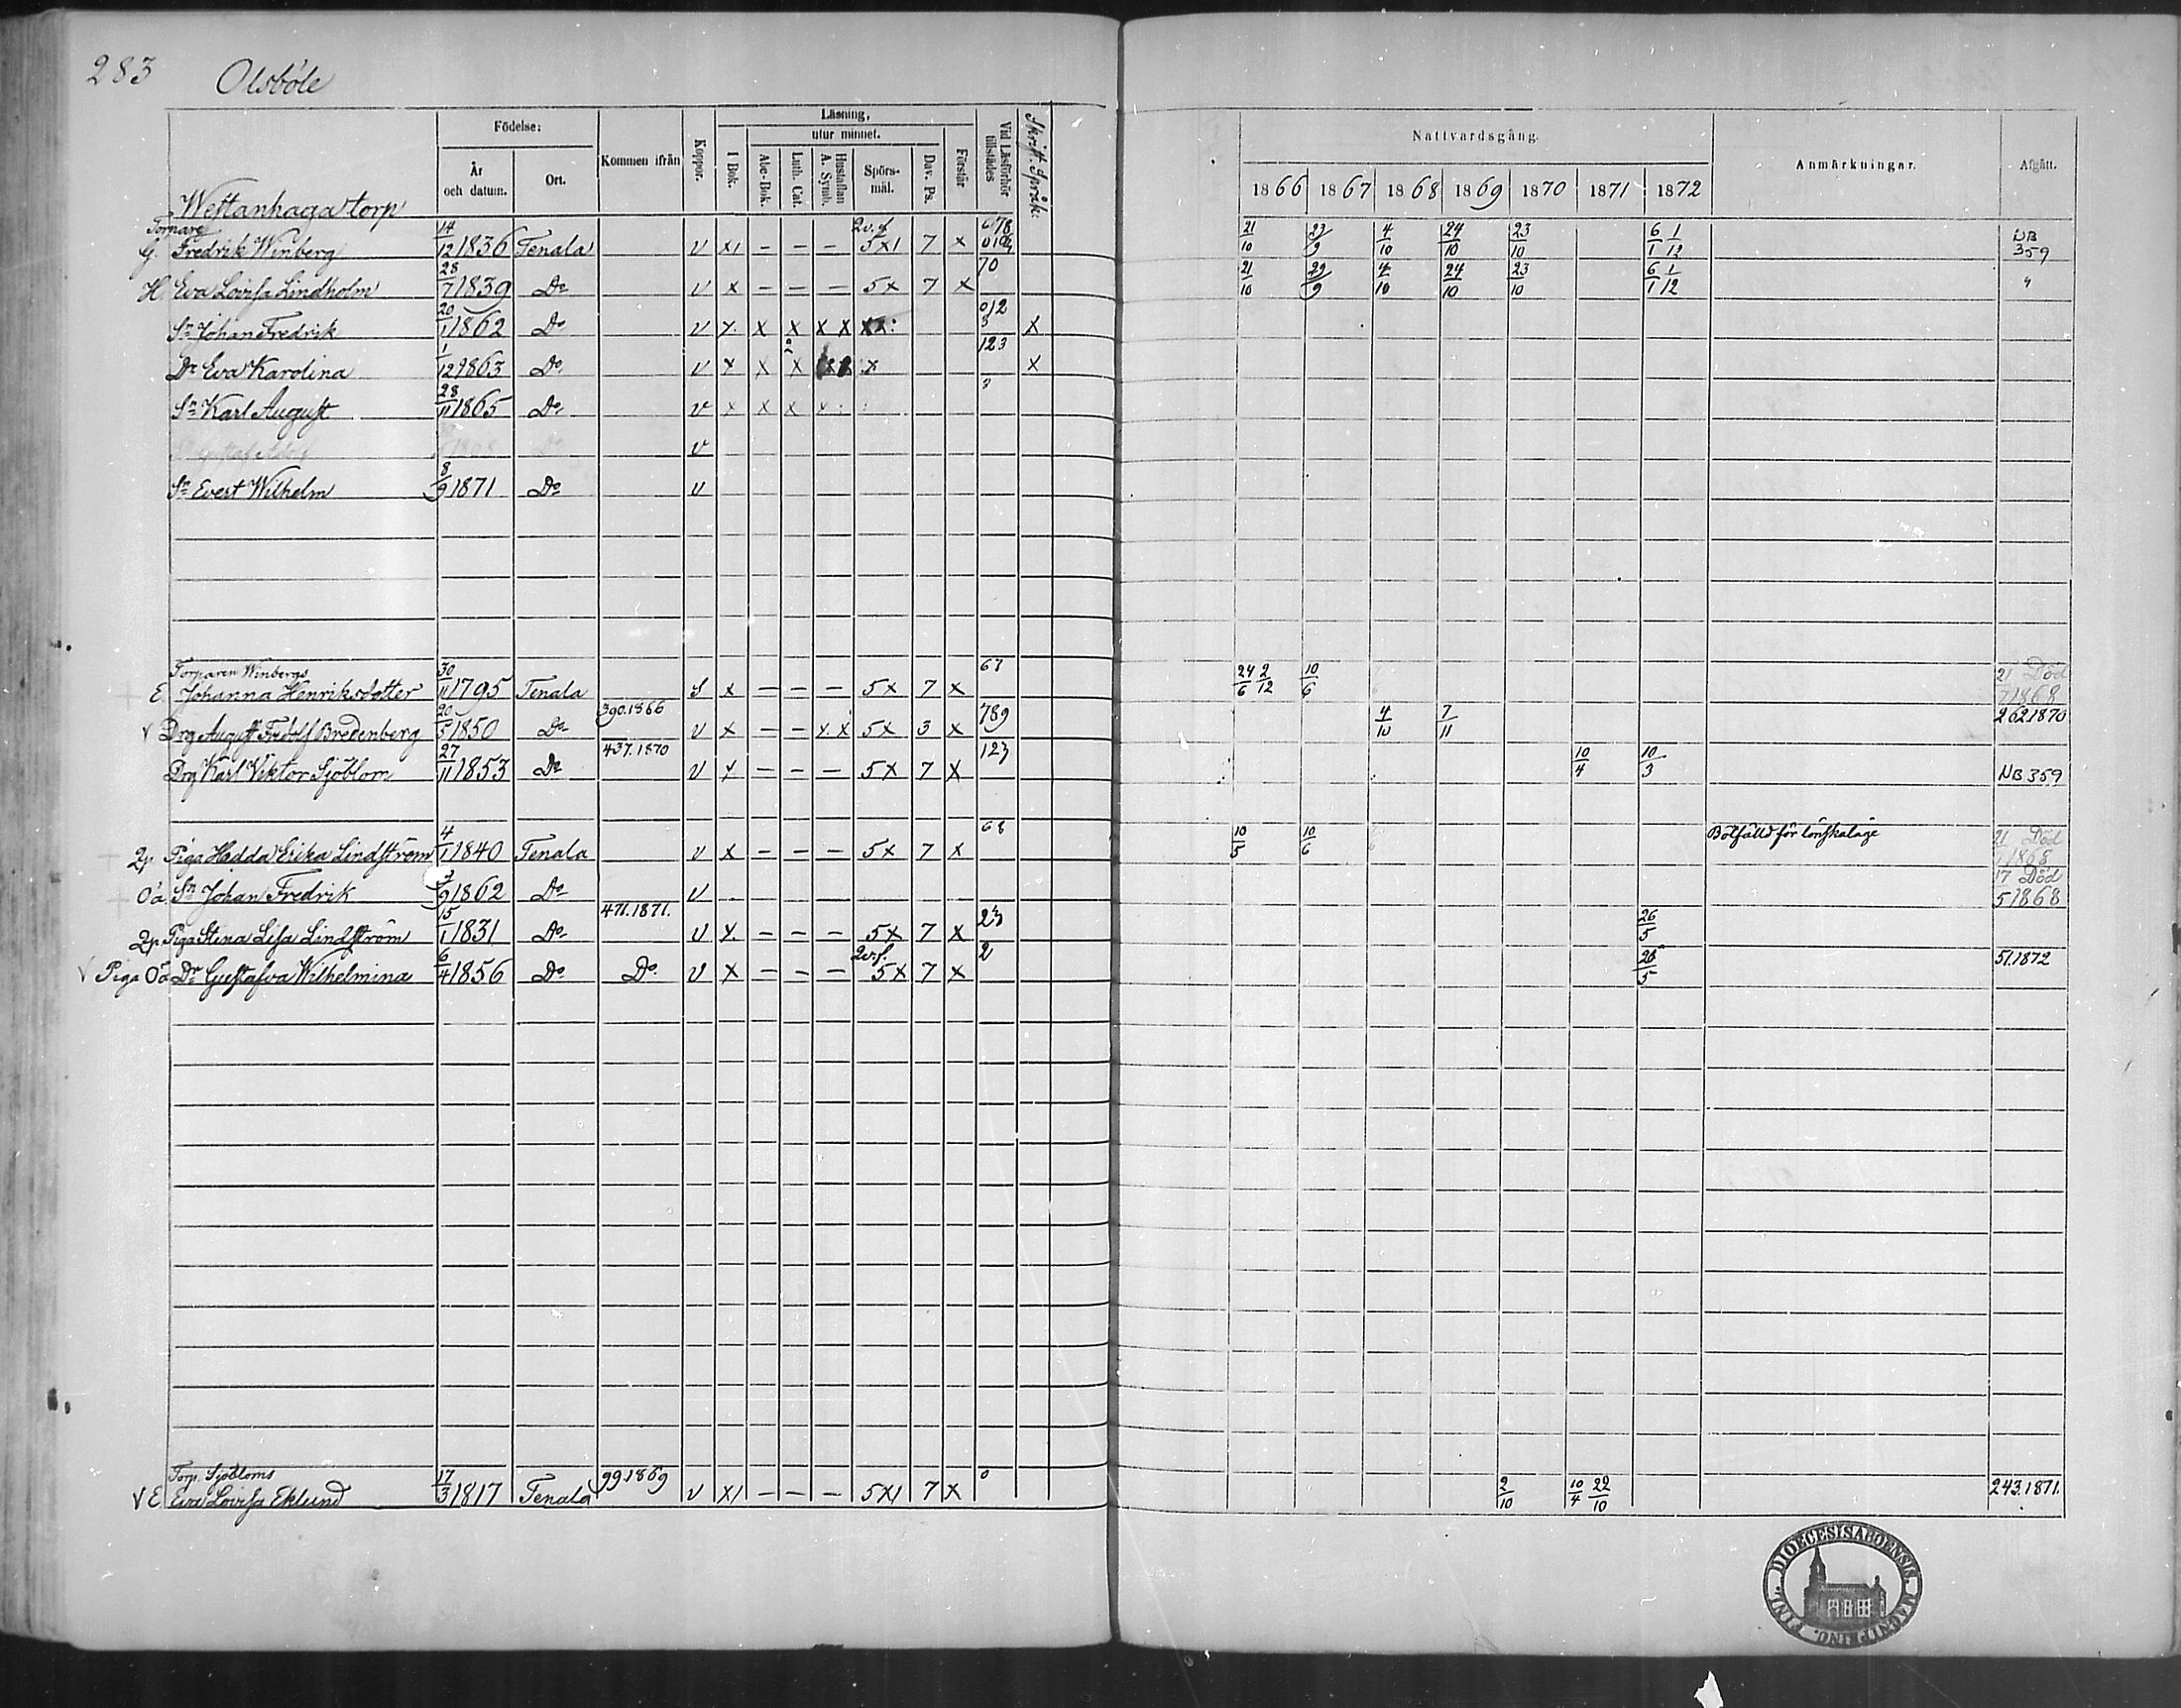 283 Olsböle
Westanhaga torp
Födelse: År och datum. Ort. Kommen ifrån Koppor. Läsning, I Bok. utur minnet. Abc-Bok. Luth. Cat. Hustaflan A. Symb. Spörs-mål. Dav. Ps. Förstår Vid Läsförhör tillstädes Skrift. Språk.
Nattvardsgång. 1866 1867 1868 1869 1870 1871 1872 Anmärkningar. Afgått.
Torpare
G. Fredrik Winberg 14/12 1836 Tenala v x1 – – – 2v.f 5x1 7 x 21/10 23/9 4/10 24/10 23/10 6/1 1/12 NB 359
H. Eva Lovisa Lindholm 28/7 1839 Do v x – – – 5x 7 x 70 21/10 29/9 4/10 24/10 23/10 6/1 1/12 "
Sn Johan Fredrik 20/1 1862 Do v x x x x x xx: 012 3 x
Dr Eva Karolina 1/12 1863 Do v x x x x 123 x
Sn Karl August 28/11 1865 Do v x x x x 3
Do v
Sn Evert Wilhelm 8/9 1871 Do v
Torparen Winbergs
E. Johanna Henriksdotter 30/11 1795 Tenala S x – – – 5x 7 x 67 24/6 2/12 10/6 21/7 Död 1868
v Drg August Fridolf Bredenberg 20/5 1850 Do 390.1866 v x – – x. x 5x 3 x 789 4/10 7/11 262.1870
Drg Karl Viktor Sjöblom 27/11 1853 Do 437.1870 v x – – – 5x 7 x 123 10/4 10/3 NB 359
2p Piga Hedda Erika Lindström 4/1 1840 Tenala v x – – – 5x 7 x 68 10/5 10/6 Bötfälld för lönskaläge 21 Död 1868
Oä Sn Johan Fredrik 1862 Do v 17/5 Död 1868
2p Piga Stina Lisa Lindström 15/1 1831 Do 471.1871. v x. – – – 5x 7 x 23 26/5
v Piga Oä Dr Gustafva Wilhelmina 6/4 1856 Do Do v x – – – 2v.f. 5x 7 x 2 26/5 51.1872
Torp. Sjöbloms
v E Eva Lovisa Eklund 17/3 1817 Tenala 99.1869 v x1 – – – 5x1 7 x 0 2/10 10/4 22/10 243.1871.
DIOECESIS ABOENSIS. MAGNI PRINC. FINL.